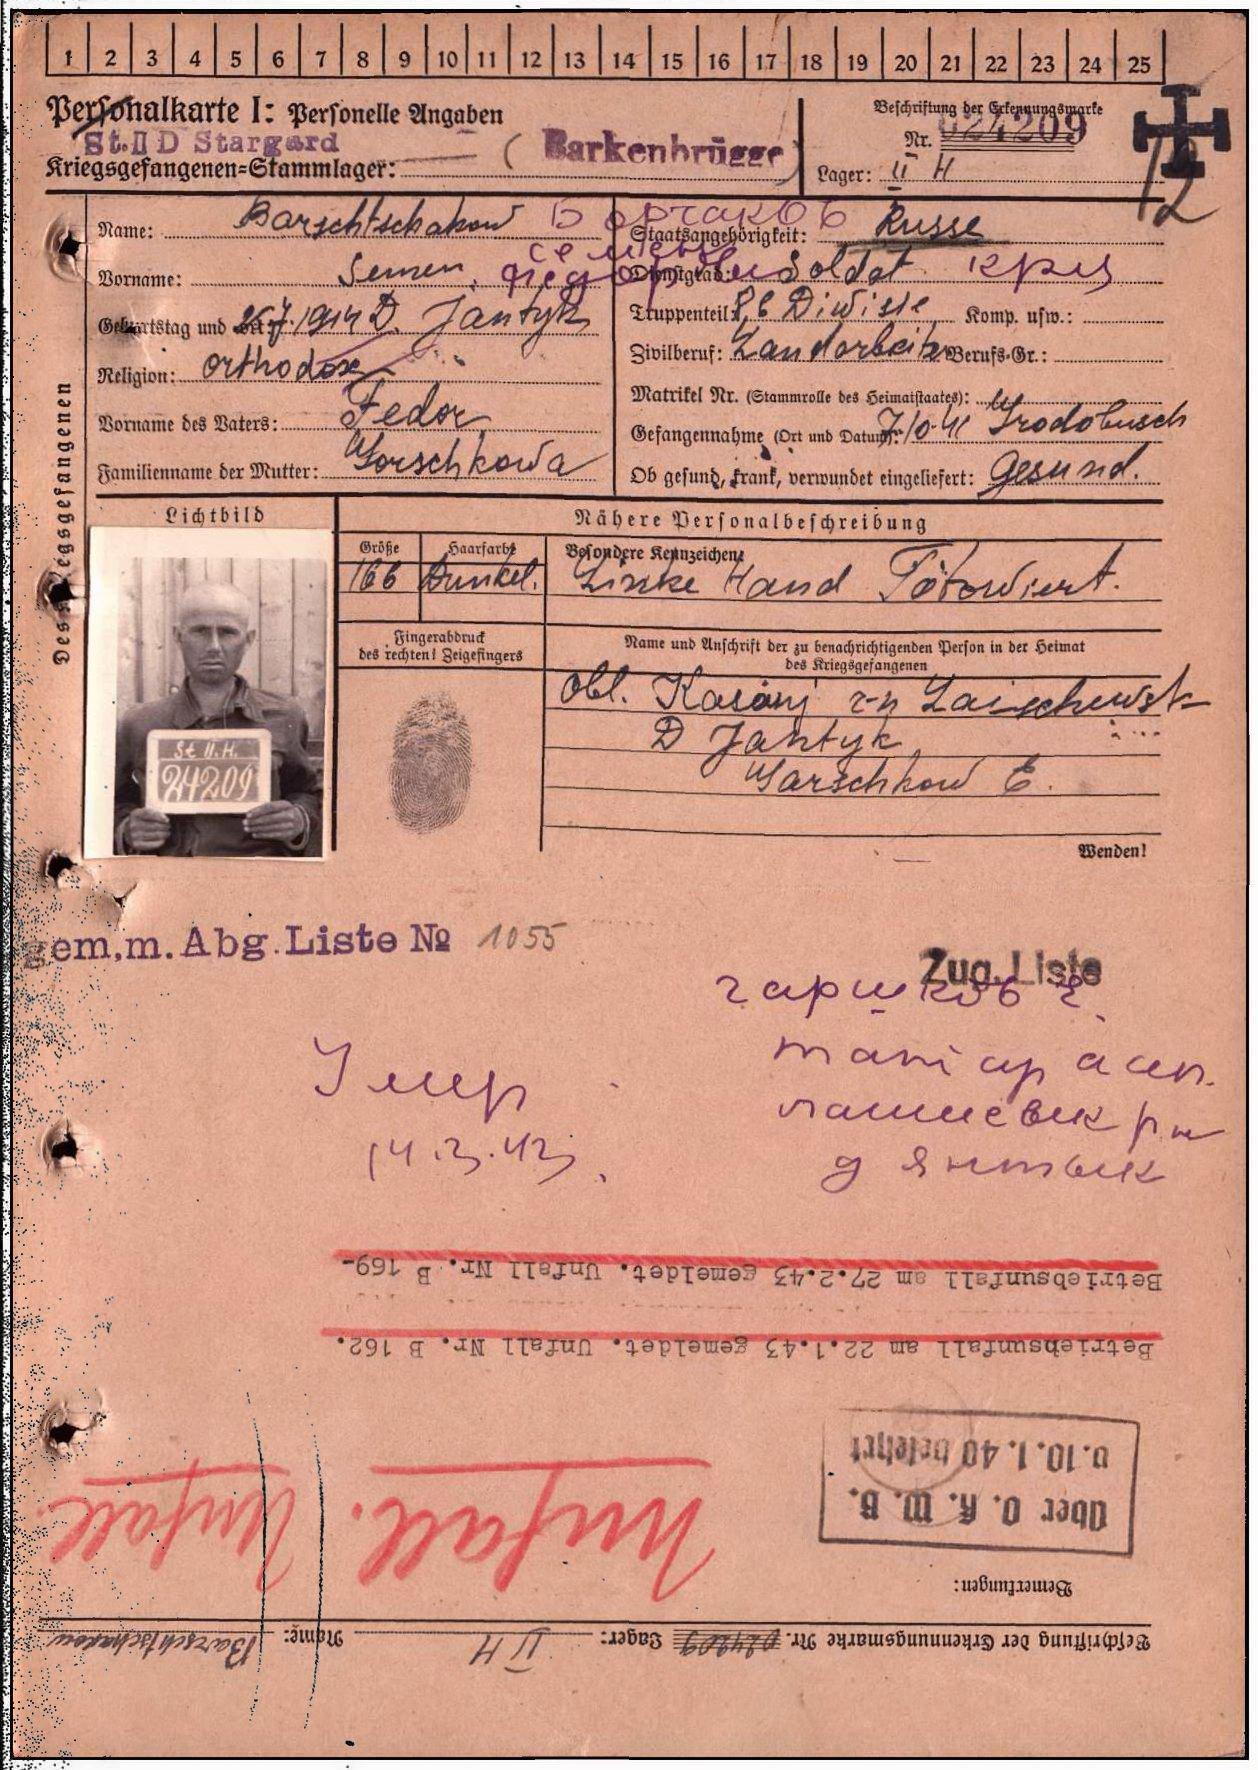 1 2 3 4 5 6 7 8 9 10 11 12 13 14 15 16 17 18 19 20 21 22 23 24 25
Personalkarte I: Personelle Angaben
St. II D Stargard
Kriegsgefangenen=Stammlager: ( Barkenbrügge )
Beschriftung der Erkennungsmarke
Nr. 024209
Lager: II H
12
Des Kriegsgefangenen
Name: Barschtschakow Борчаковъ
Vorname: Semen, Семенъ
Geburtstag und Ort: 7. 1914 D. Jantyk
Religion: Orthodox
Vorname des Vaters: Fedor
Familienname der Mutter: Gorschkowa
Staatsangehörigkeit: Russe
Dienstgrad: Soldat
Truppenteil: Komp. usw.:
Zivilberuf: Landarbeiter Berufs-Gr.:
Matrikel Nr. (Stammrolle des Heimatstaates):
Gefangennahme (Ort und Datum): 7.10.41 Grodobusch
Ob gesund, krank, verwundet eingeliefert: Gesund.
Lichtbild
Nähere Personalbeschreibung
Größe Haarfarbe Besondere Kennzeichen:
166 Dunkel. Linke Hand Tötowiert.
St II.H.
24209
Fingerabdruck
des rechten! Zeigefingers
Name und Anschrift der zu benachrichtigenden Person in der Heimat
des Kriegsgefangenen
Obl. Kasanj r-n Laischewsk
D Jantyk
Garschkow E.
Wenden!
gem.m. Abg.Liste № 1055
Zug. Liste
гаршковъ Е.
лашевск рн
д янтык
Умер
14.3.43.
Betriebsunfall am 27.2.43 gemeldet. Unfall Nr. B 169-
Betriebsunfall am 22.1.43 gemeldet. Unfall Nr. B 162.
Über O. K. W. B.
v. 10. 1. 40 belehrt
Unfall. Unfall.
Bemerkungen:
Beschriftung der Erkennungsmarke Nr. 024209 Lager: II H Name: Barschtschakow